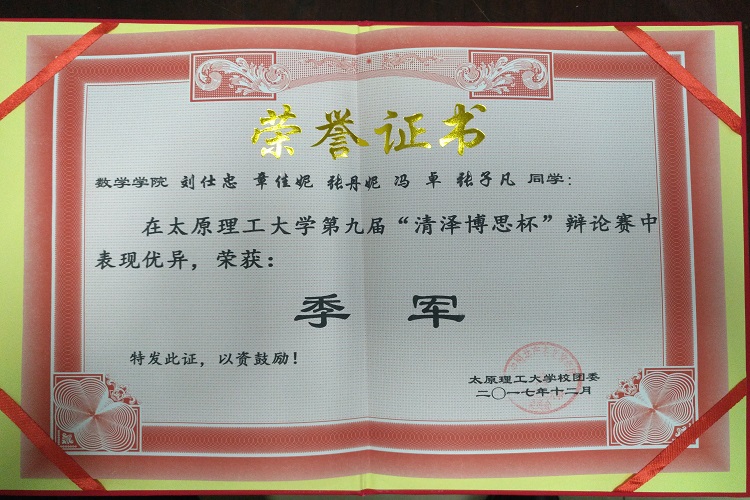 荣誉证书
数学学院 刘仕忠 章佳妮 张丹妮 冯 卓 张子凡 同学：
在太原理工大学第九届“清泽博思杯”辩论赛中
表现优异，荣获：
季 军
特发此证，以资鼓励！
太原理工大学校团委
二〇一七年十二月